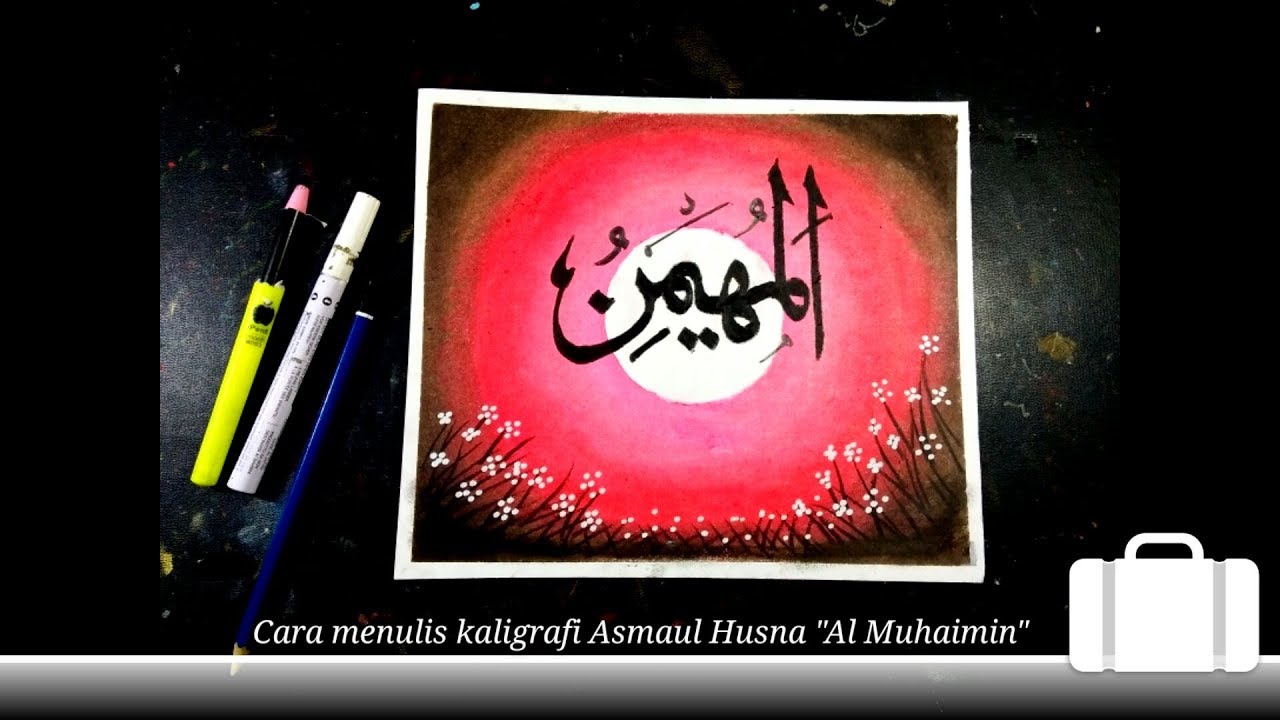 اَلْمُهَيْمِنُ
Cara menulis kaligrafi Asmaul Husna "Al Muhaimin"